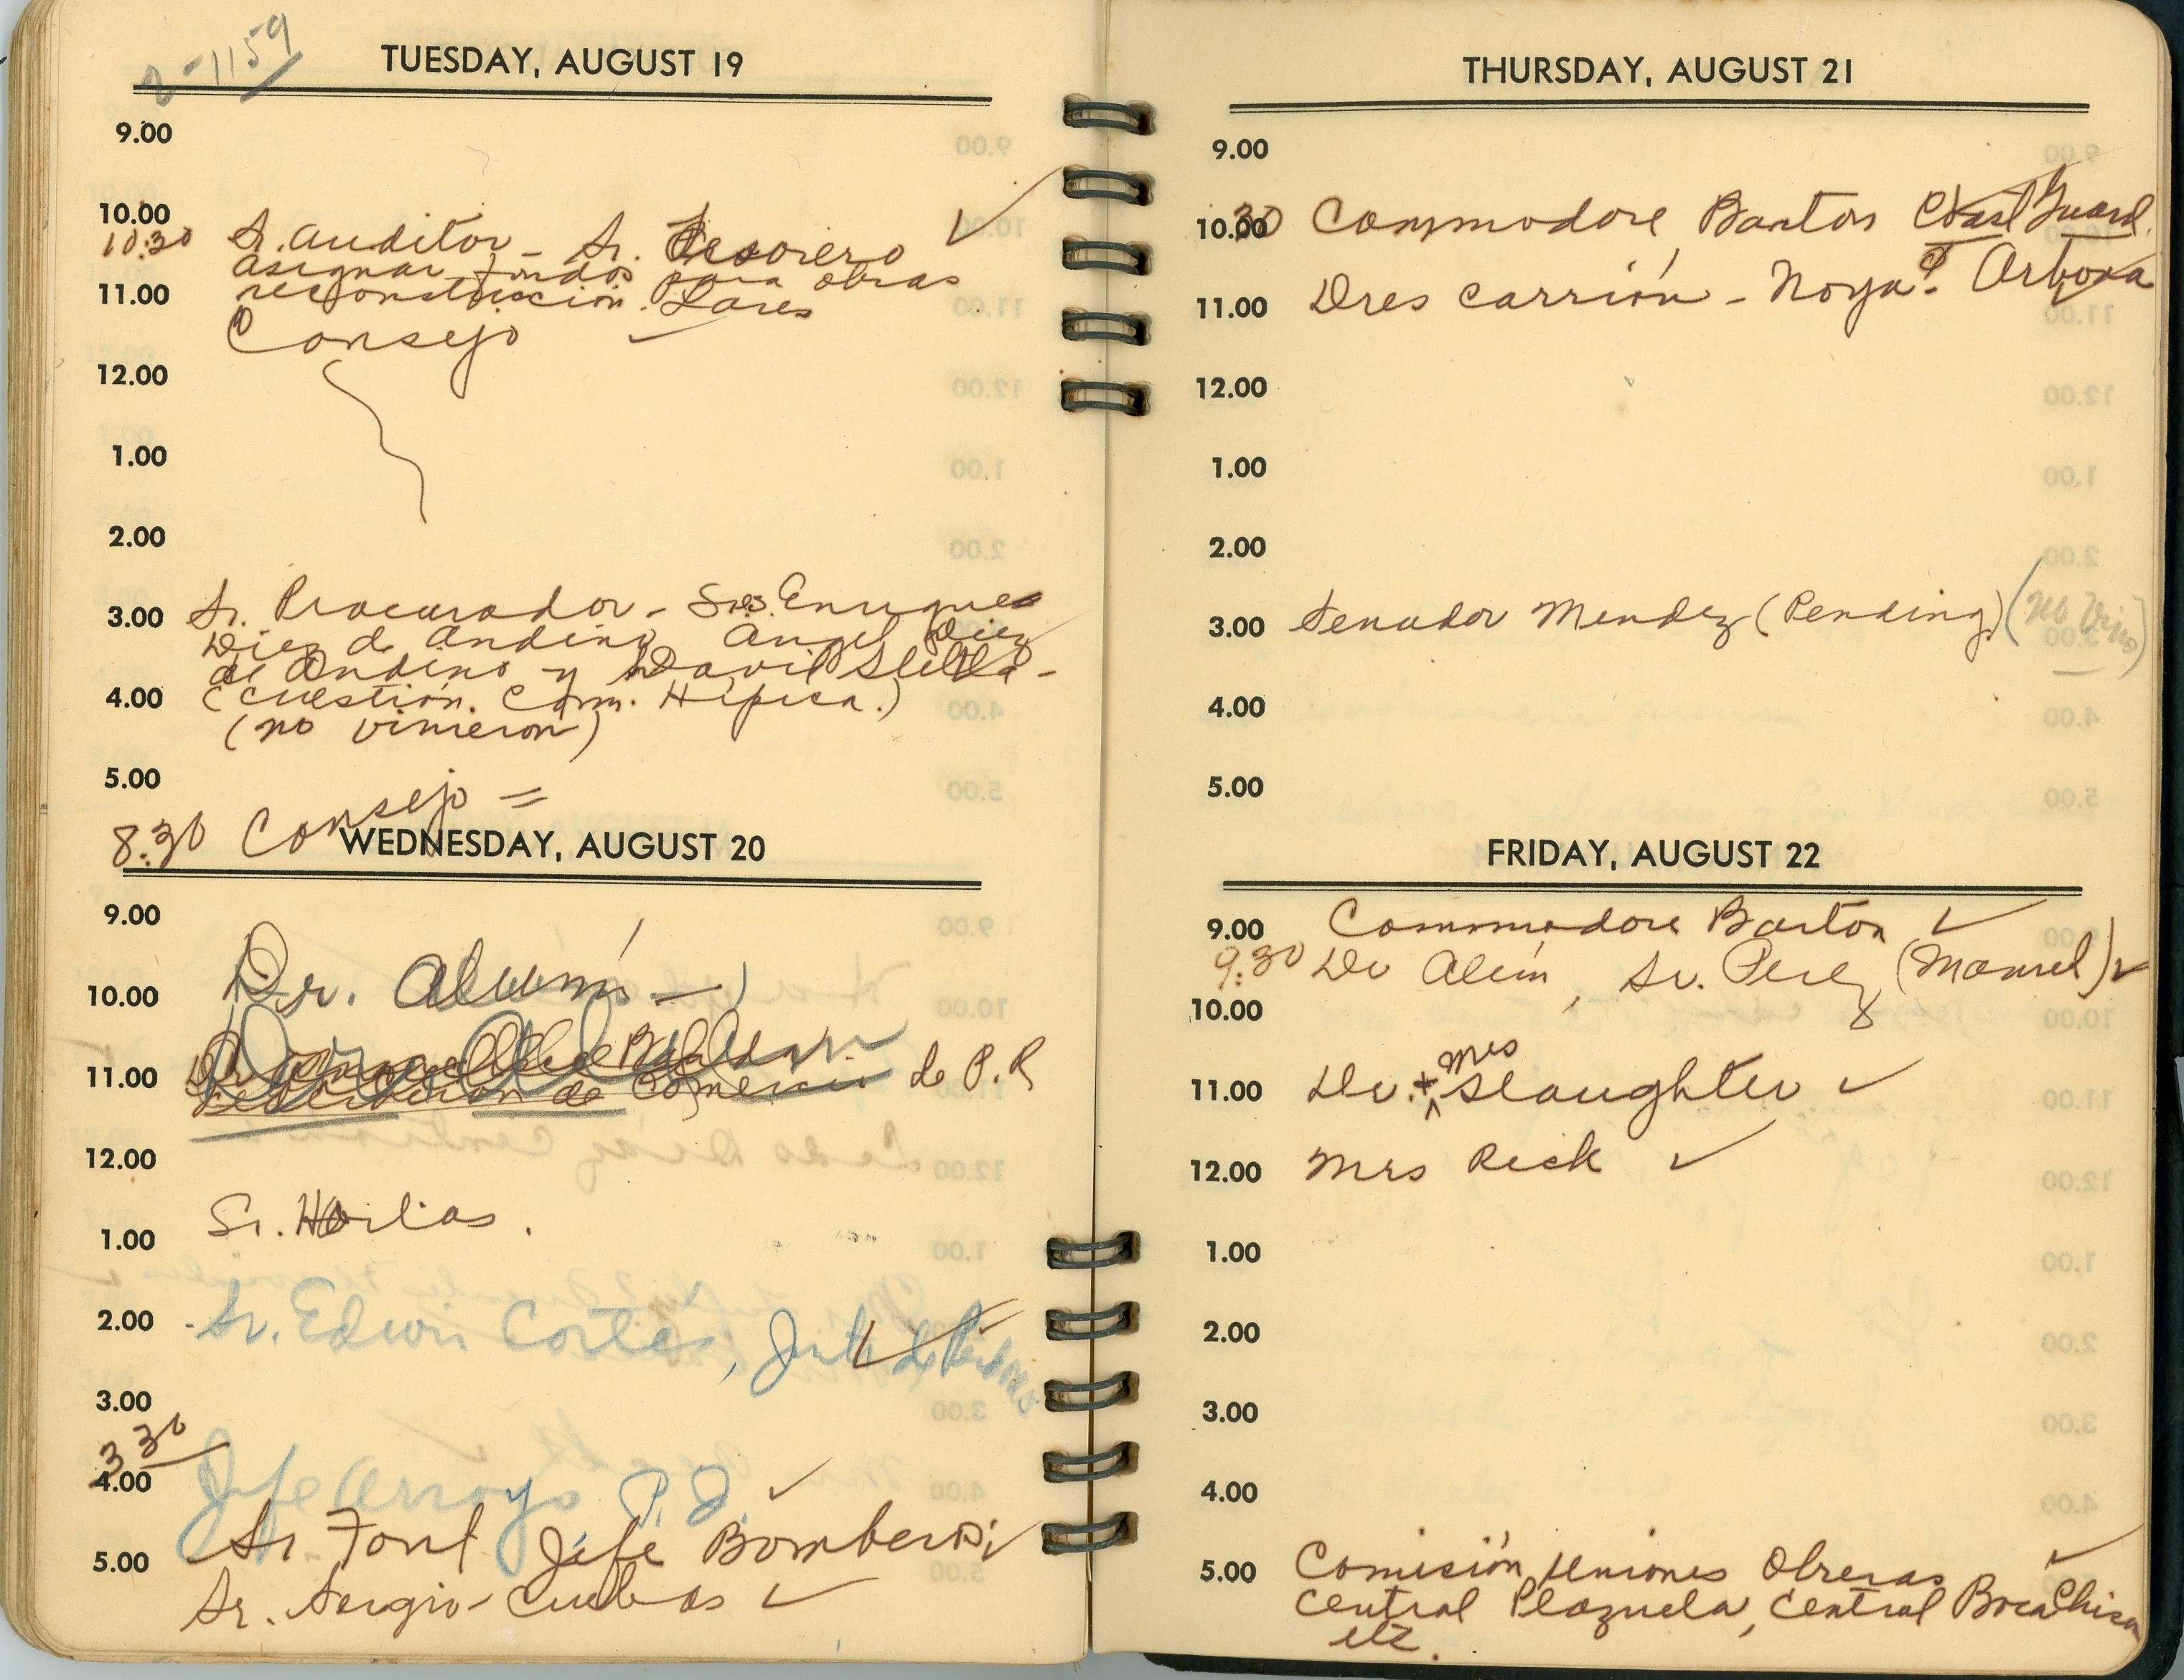 2-1159
TUESDAY, AUGUST 19
9.00
10.00
10:30 Sr. Auditor - Sr. Tesorero
asignar fondos para obras
11.00 reconstrucción. Lares
Consejo
12.00
1.00
2.00
3.00 Sr. Procurador - Sres. Enrique
Diez de Andino, Angel Diez
de Andino y David
4.00 (Cuestión. Com. Hípica.)
(no vinieron)
5.00
8:30 Consejo =
WEDNESDAY, AUGUST 20
9.00
10.00 Dr.
11.00 de Comercio de P.R
12.00
Sr.
1.00
2.00 Sr. Edwin Cortes, Junta de
3.00
3 30
4.00 Jefe Arroyo P. I.
5.00 Sr. Font Jefe Bomberos
Sr. Sergio Cuebas
THURSDAY, AUGUST 21
9.00
10.00 30 Commodore Barton Coast Guard
11.00 Dres Carrión - Noya & Arbona
12.00
1.00
2.00
3.00 Senador Mendez (Pending) (No Vino)
4.00
5.00
FRIDAY, AUGUST 22
9.00 Commodore Barton
9:30 Dr Sr. Perez (Manuel)
10.00
Mrs
11.00 Dr. + Slaughter
12.00 Mrs Rick
1.00
2.00
3.00
4.00
5.00 Comisión Uniones Obreras
Central Plazuela, Central Boca Chica
etc.